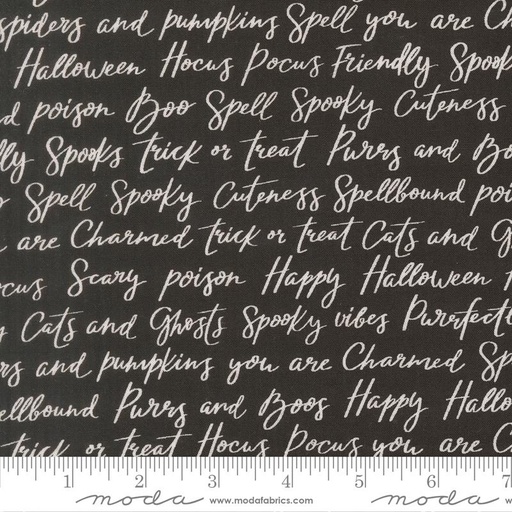 spiders and pumpkins Spell you are Ch
Halloween Hocus Pocus Friendly Spook
d poison Boo Spell Spooky Cuteness
lly Spooks trick or treat Purrs and Bo
y Spell Spooky Cuteness Spellbound poi
are Charmed trick or treat Cats and G
ocus Scary poison Happy Halloween
y Cats and Ghosts Spooky vibes Purrfectl
rs and pumpkins you are Charmed Sp
ellbound Purrs and Boos Happy Hallo
trick or treat Hocus Pocus you are C
1 2 3 4 5 6 7
moda www.modafabrics.com moda www.modafabrics.com moda w